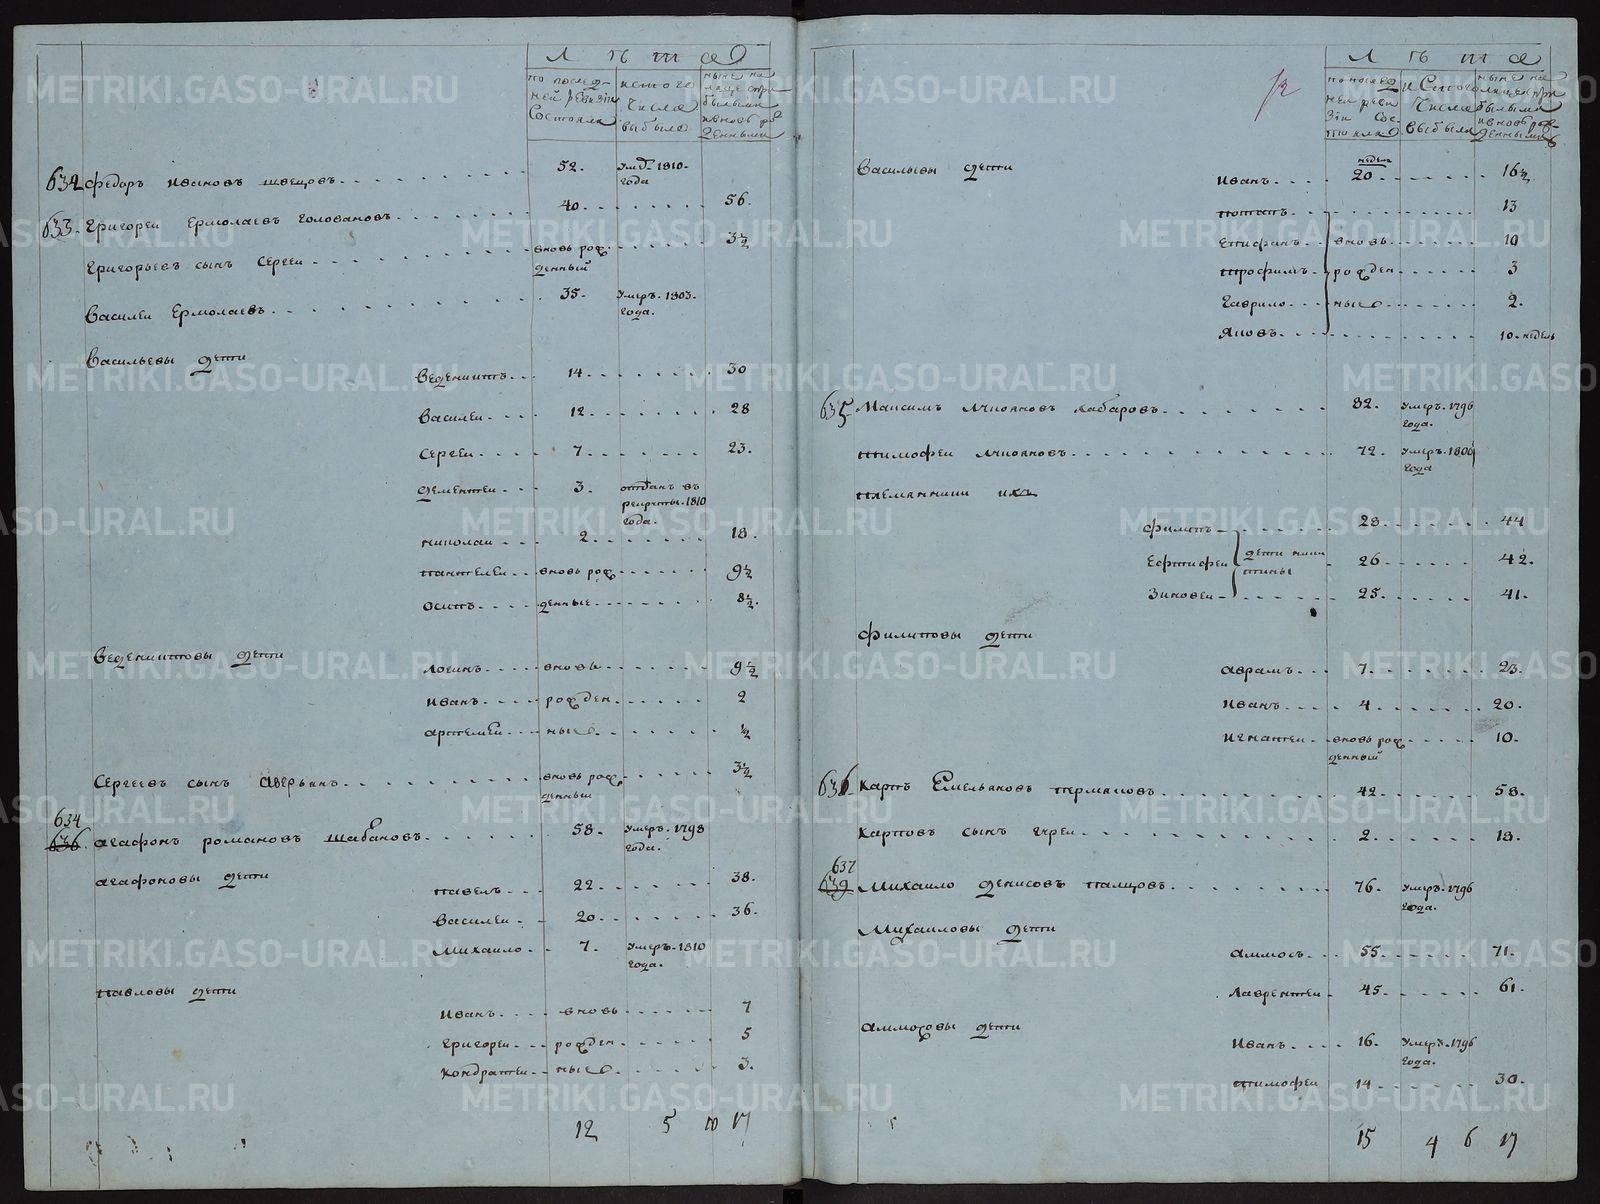 Лѣта
по послед-
ней ревизiи
Состояли
ис того
числа
выбыло
ныне на
лице спри
былыми
ивновь ро
жденными
632 Федоръ Ивановъ швецовъ 52. Умрѣ 1810-
года
633. Григореи Ермолаевъ головановъ 40 56.
Григорьевъ сынъ Сергеи вновь рож 3½
денный
Василеи Ермолаевъ 35. Умеръ 1803.
года.
Васильевы дети
Веденихтъ 14 30
Василеи 12 28
Сергеи 7 23.
Дементеи 3. отданъ въ
рекруты 1810
года.
Николаи 2 18.
Пантелеи вновь рож 9½
Осипъ денные 8½.
Веденихтовы дети
Логинъ вновь 9½
Иванъ рожден 2
Артемеи ные ½
Сергеевъ сынъ Аверьянъ вновь рож 3½
денный
634
636 Агафонъ романовъ шабановъ 58. Умеръ 1798
года.
Агафоновы дети
Павелъ 22 38.
Василеи 20 36.
Михаило 7. Умеръ 1810
года.
Павловы дети
Иванъ вновь 7
Григореи рожден 5
Кондратеи ные 3.
12 5 10 17
Лѣта
по послед
ней реви
зiи Сос-
тояло
и Стого
Числа
выбыли
ныне на
лице спри
былыми
ивновь рож-
денными
Васильевы дети
недель
Иванъ 20 16½
Потапъ 13
Епифанъ вновь 10
Трофимъ рожден 3
Гаврило ные 2.
Яковъ 10 недель
635 Максимъ Лукояновъ хабаровъ 82. Умеръ 1796
года.
Тимофеи Лукояновъ 72. Умеръ 1800
года
Племянники ихъ
Филипъ 28 44
Ефтифеи дети ники 26 42.
тины
Зиновеи 25 41.
Филиповы дети
Аврамъ 7 23.
Иванъ 4 20.
Игнатеи вновь рож 10.
денный
636 Карпъ Емельяновъ пермяковъ 42 58.
Карповъ сынъ гуреи 2 18.
637
639 Михаило Денисовъ палцовъ 76. Умеръ 1796
года.
Михаиловы дети
Аммосъ 55 71.
Лаврентеи 45 61.
Аммосовы дети
Иванъ 16. Умеръ 1796
года.
Тимофеи 14 30.
15 4 6 17
METRIKI.GASO-URAL.RU